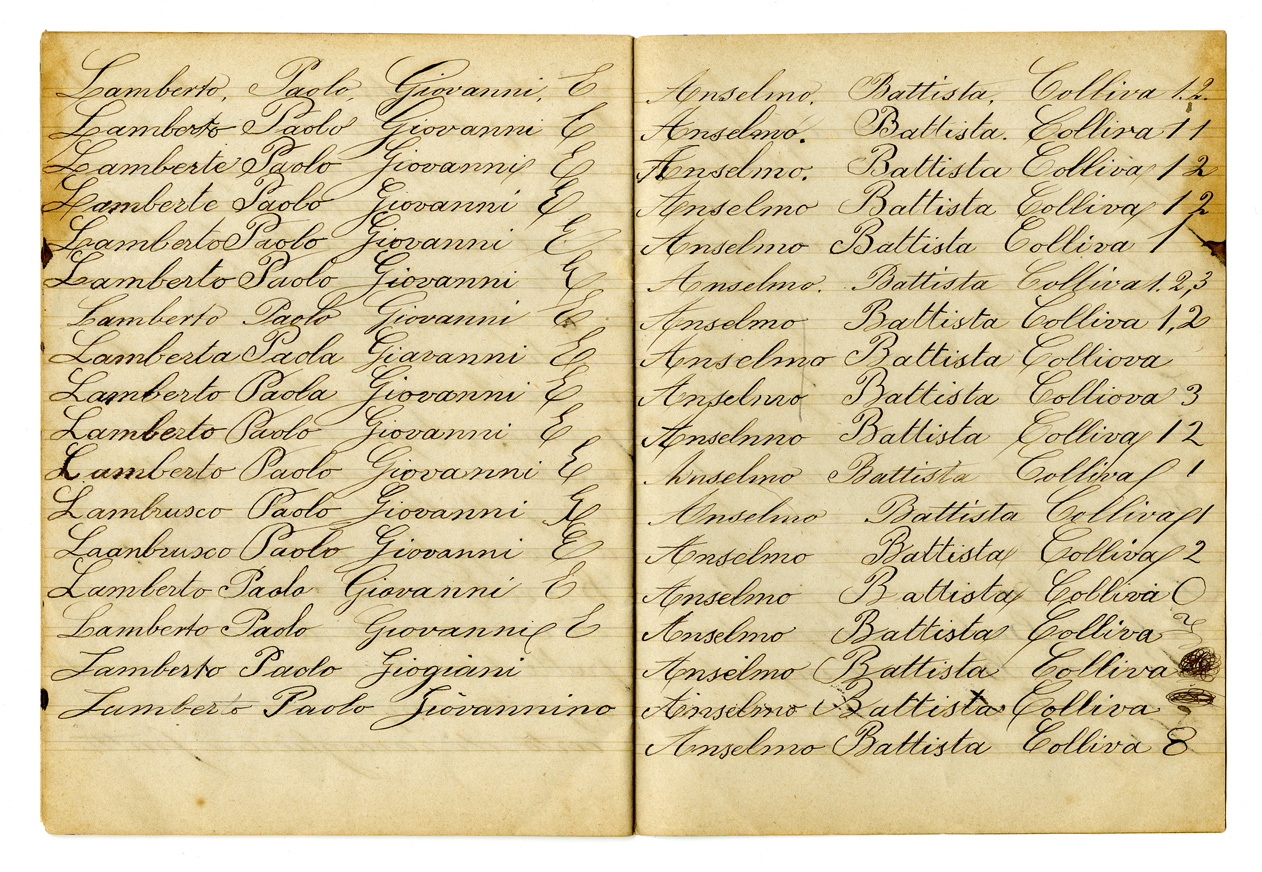 Lamberto, Paolo, Giovanni, E
Lamberto Paolo Giovanni E
Lamberte Paolo Giovanni E
Lamberte Paolo Giovanni E
Lamberto Paolo Giovanni E
Lamberto Paolo Giovanni E
Lamberto Paolo Giovanni E
Lamberta Paola Giavanni E
Lamberto Paola Giovanni E
Lamberto Paolo Giovanni E
Lamberto Paolo Giovanni E
Lambrusco Paolo Giovanni E
Laanbrusco Paolo Giovanni E
Lamberto Paolo Giovanni E
Lamberto Paolo Giovanni E
Lamberto Paolo Giogiani
Lumberto Paolo Giovannino
Anselmo. Battista. Colliva 1.2.
Anselmo. Battista. Colliva 1 1
Anselmo. Battista Colliva 1 2
Anselmo Battista Colliva 1 2
Anselmo Battista Colliva 1
Anselmo. Battista Colliva 1. 2,3
Anselmo Battista Colliva 1,2
Anselmo Battista Colliova
Anselmo Battista Colliova 3
Anselnno Battista Colliva 1 2
Anselmo Battista Colliva 1
Anselmo Battista Colliva 1
Anselmo Battista Colliva 2
Anselmo Battista Colliva 0
Anselmo Battista Colliva
Anselmo Battista Colliva
Anselmo Battista Colliva
Anselmo Battista Colliva 8